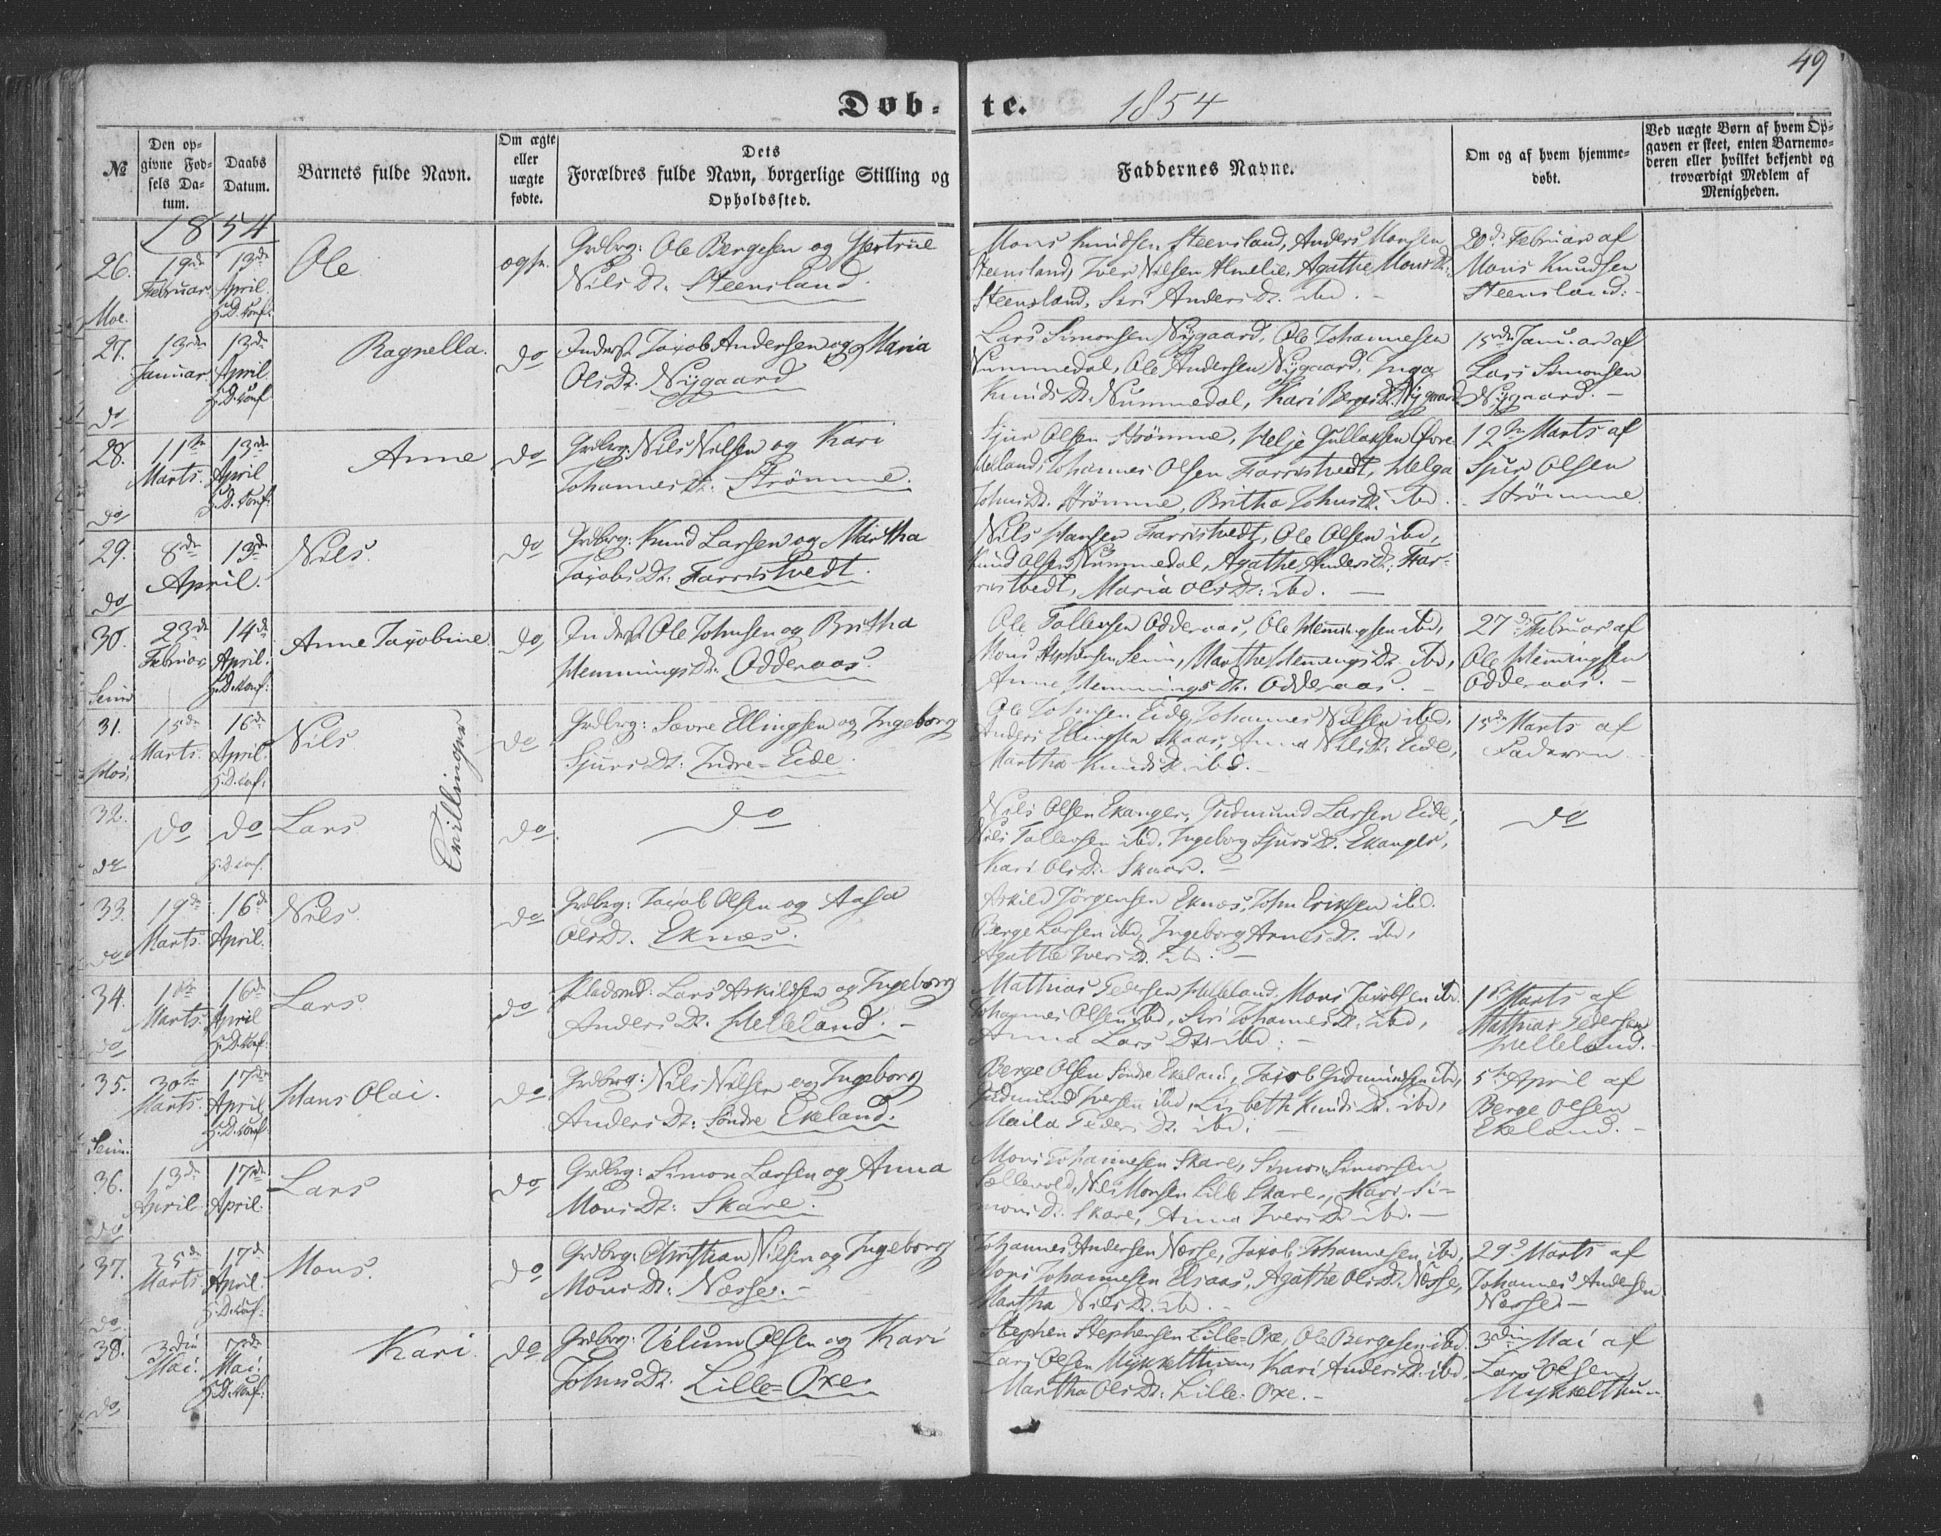 49
Døb- te. 1854
№
Den op-
givne Fød-
sels Da-
tum.
Daabs
Datum.
Barnets fulde Navn.
Om ægte
eller
uægte
fødte.
Dets
Forældres fulde Navn, borgerlige Stilling og
Opholdssted.
Faddernes Navne.
Om og af hvem hjemme-
døbt.
Ved uægte Børn af hvem Op-
gaven er skeet, enten Barnemo-
deren eller hvilket bekjendt og
troværdigt Medlem af
Menigheden.
1854
26. 19de Februar 13de April Ole
Grdbrg: Ole Bergesen og
Nils Dt. Steensland.
Mons Knudsen Steensland, Anders Monsen
Steensland, Iver Nilsen Almelie, Agathe Mons Dt.
Steensland, Siri Anders Dt. ibd.
20de Februar af
Mons Knudsen
Steensland.
Moe.
27. 13de Januar 13de April Ragnella. do
Inderst Jacob Andersen og Maria
Ols Dt. Nygaard
Lars Simonsen Nygaard, Ole Johannesen
Nummedal, Ole Andersen Nygaard, Inga
Knuds Dt. Nummedal, Kari Berges Dt. Nygaard
15de Januar af
Lars Simonsen
Nygaard.
do
28. 11te Marts 13de April Anne do
Grdbrg: Nils Nilsen og Kari
Johannes Dt. Strømme.
Sjur Olsen Strømme, Helje Gullaksen Øvre
Helland, Johannes Olsen Farristvedt, Helga
Johns Dt. Strømme, Britha Johns Dt. ibd.
12te Marts af
Sjur Olsen
Strømme.
do
29. 8de 13de April. Nils. do
Grdbrg: Knud Larsen og Martha
Jacobs Dt. Farristvedt.
Nils Hansen Farristvedt, Ole Olsen ibd,
Knud Olsen Nummedal, Agathe Anders Dt. Far-
ristvedt, Maria Ols Dt. ibd.
do
30. 23de Februar 14de April. Anne Jacobine do
Inderst Ole Johnsen og Britha
Hemmings Dt. Odderaas.
Ole Tollefsen Odderaas, Ole Hemmingsen ibd,
Mons Stephensen Seim, Marthe Hemmings Dt. ibd,
Anne Hemmings Dt. Odderaas.
27de Februar af
Ole Hemmingsen
Odderaas.
Seim
31. 15de Marts 16de April. Nils Tvillinger do
Grdbrg: Sævre Ellingsen og Ingeborg
Sjurs Dt: Indre-Eide.
Ole Johnsen Eide, Johannes Nilsen ibd,
Anders Ellingsen Skaar, Anna Nils Dt. Eide,
Martha Knuds Dt. ibd.
15de Marts af
Faderen
32. do do Lars do. do
Nils Olsen Ekanger, Gudmund Larsen Eide,
Nils Tollefsen ibd, Ingeborg Sjurs Dt. Ekanger,
Kari Ols Dt. Skaar.
do
do
33. 19de Marts. 16de April. Nils. do
Grdbrg: Jacob Olsen og Aasa
Ols Dt. Eknæs.
Askild Jørgensen Eknæs, John Eriksen ibd.
Berge Larsen ibd, Ingeborg Arnes Dt. ibd,
Agathe Ivers Dt. ibd.
do
34. 1ste Marts 16de April Lars do
Pladsmd: Lars Askildsen og Ingeborg
Anders Dt. Helleland.
Mathias Pedersen Helleland, Mons Jacobsen ibd.
Johannes Olsen ibd, Siri Johannes Dt. ibd,
Anna Lars Dt. ibd.
1ste Marts af
Mathias Pedersen
Helleland.
do
35. 30te Marts. 17de April Hans Olai. do
Grdbrg: Nils Nilsen og Ingeborg
Anders Dt: Søndre Ekeland.
Berge Olsen Søndre Ekeland, Jacob Gudmundsen ibd,
Gudmund Iversen ibd, Lisbeth Knuds Dt. ibd,
Maila Peders Dt. ibd.
5te April af
Berge Olsen
Ekeland.
Seim.
36. 13de April 17de April. Lars do
Grdbrg: Simon Larsen og Anna
Mons Dt: Skare.
Mons Johannesen Skare, Simon Simonsen
Sællevold, Nils Monsen Lille Skare, Kari Si-
mons D. Skare, Anna Ivers Dt. ibd.
do
37. 25de Marts 17de April. Mons. do
Grdbrg: Christian Nilsen og Ingeborg
Mons Dt: Næsse.
Johannes Andersen Næsse, Jacob Johannesen ibd,
Mons Johannesen Elsaas, Agathe Ols Dt. Næsse,
Martha Nils Dt. ibd.
29de Marts af
Johannes Andersen
Næsse.
do.
38. 3die Mai. 7de Mai. Kari do
Grdbrg: Vilum Olsen og Kari
Johns Dt. Lille-Oxe.
Stephen Stephensen Lille-Oxe, Ole Bergesen ibd.
Lars Olsen Mykkelthun, Kari Anders Dt. ibd,
Martha Ols Dt. Lille-Oxe.
3die Mai af
Lars Olsen
Mykkelthun
do